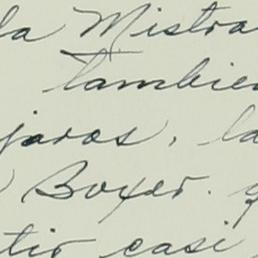 la Mistra
tambien
jaros, la
Boxer.
tir casi